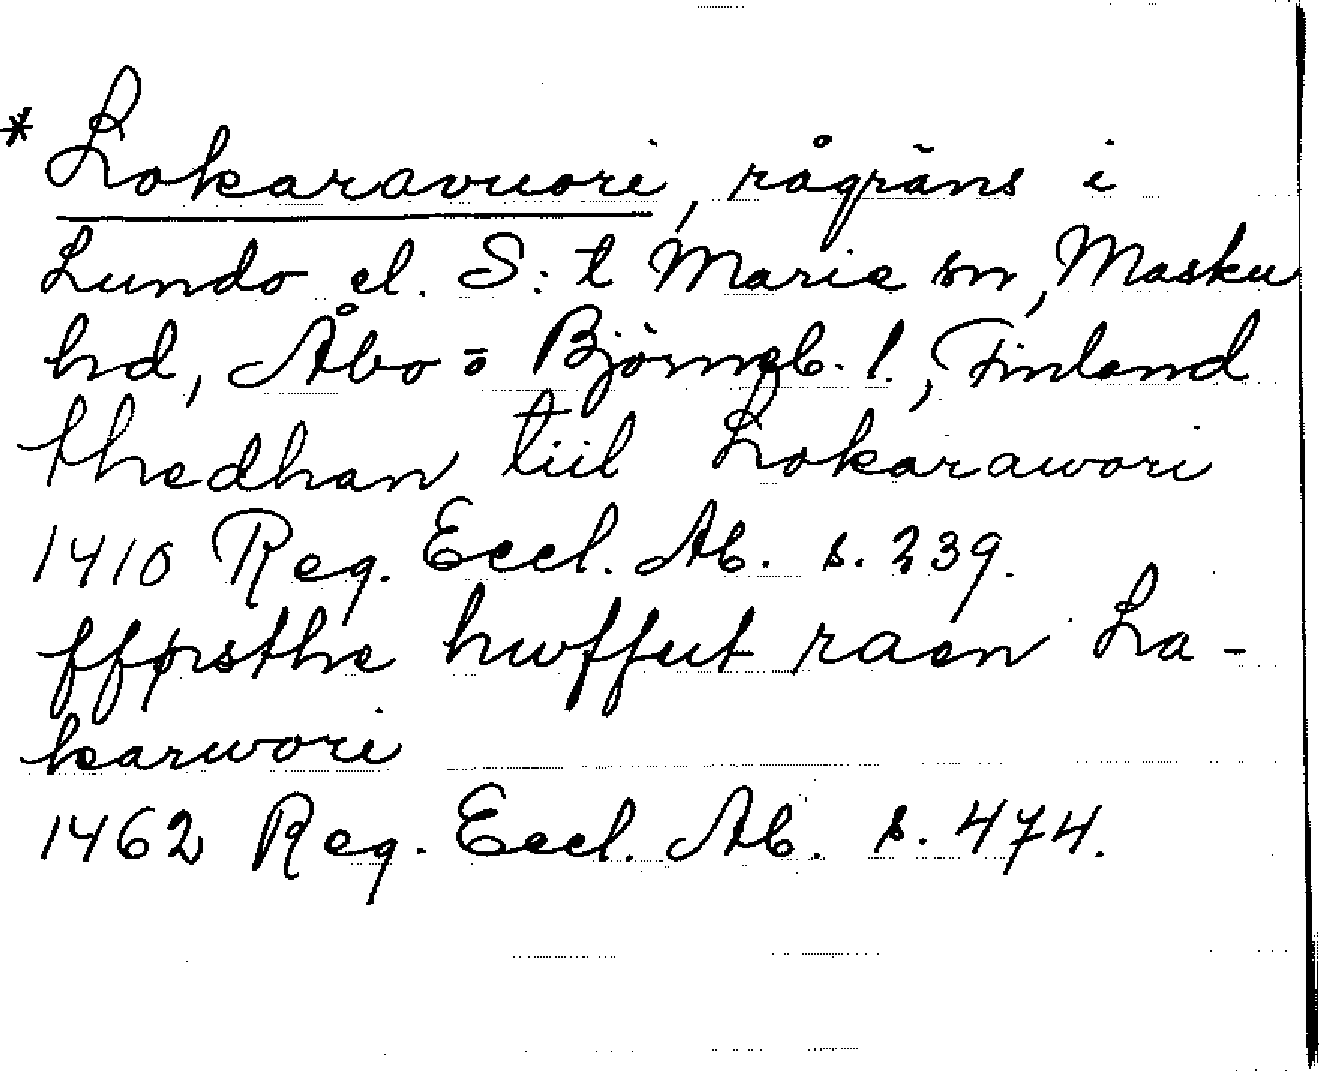 * Lokaravuori, rågräns i
Lundo el. S:t Marie sn, Masku
hd, Åbo o Björneb. l., Finland
thedhan tiil Lokarawori
1410 Reg. Eccl. Ab. s. 239.
fførsthe hwffut raen La-
karwori
1462 Reg. Eccl. Ab. s. 474.